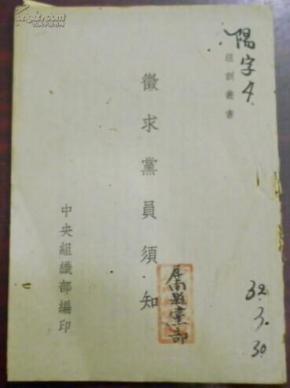 陽字4
組訓叢書
徵求黨員須知
屏南縣黨部
中央組織部編印
32.3.30